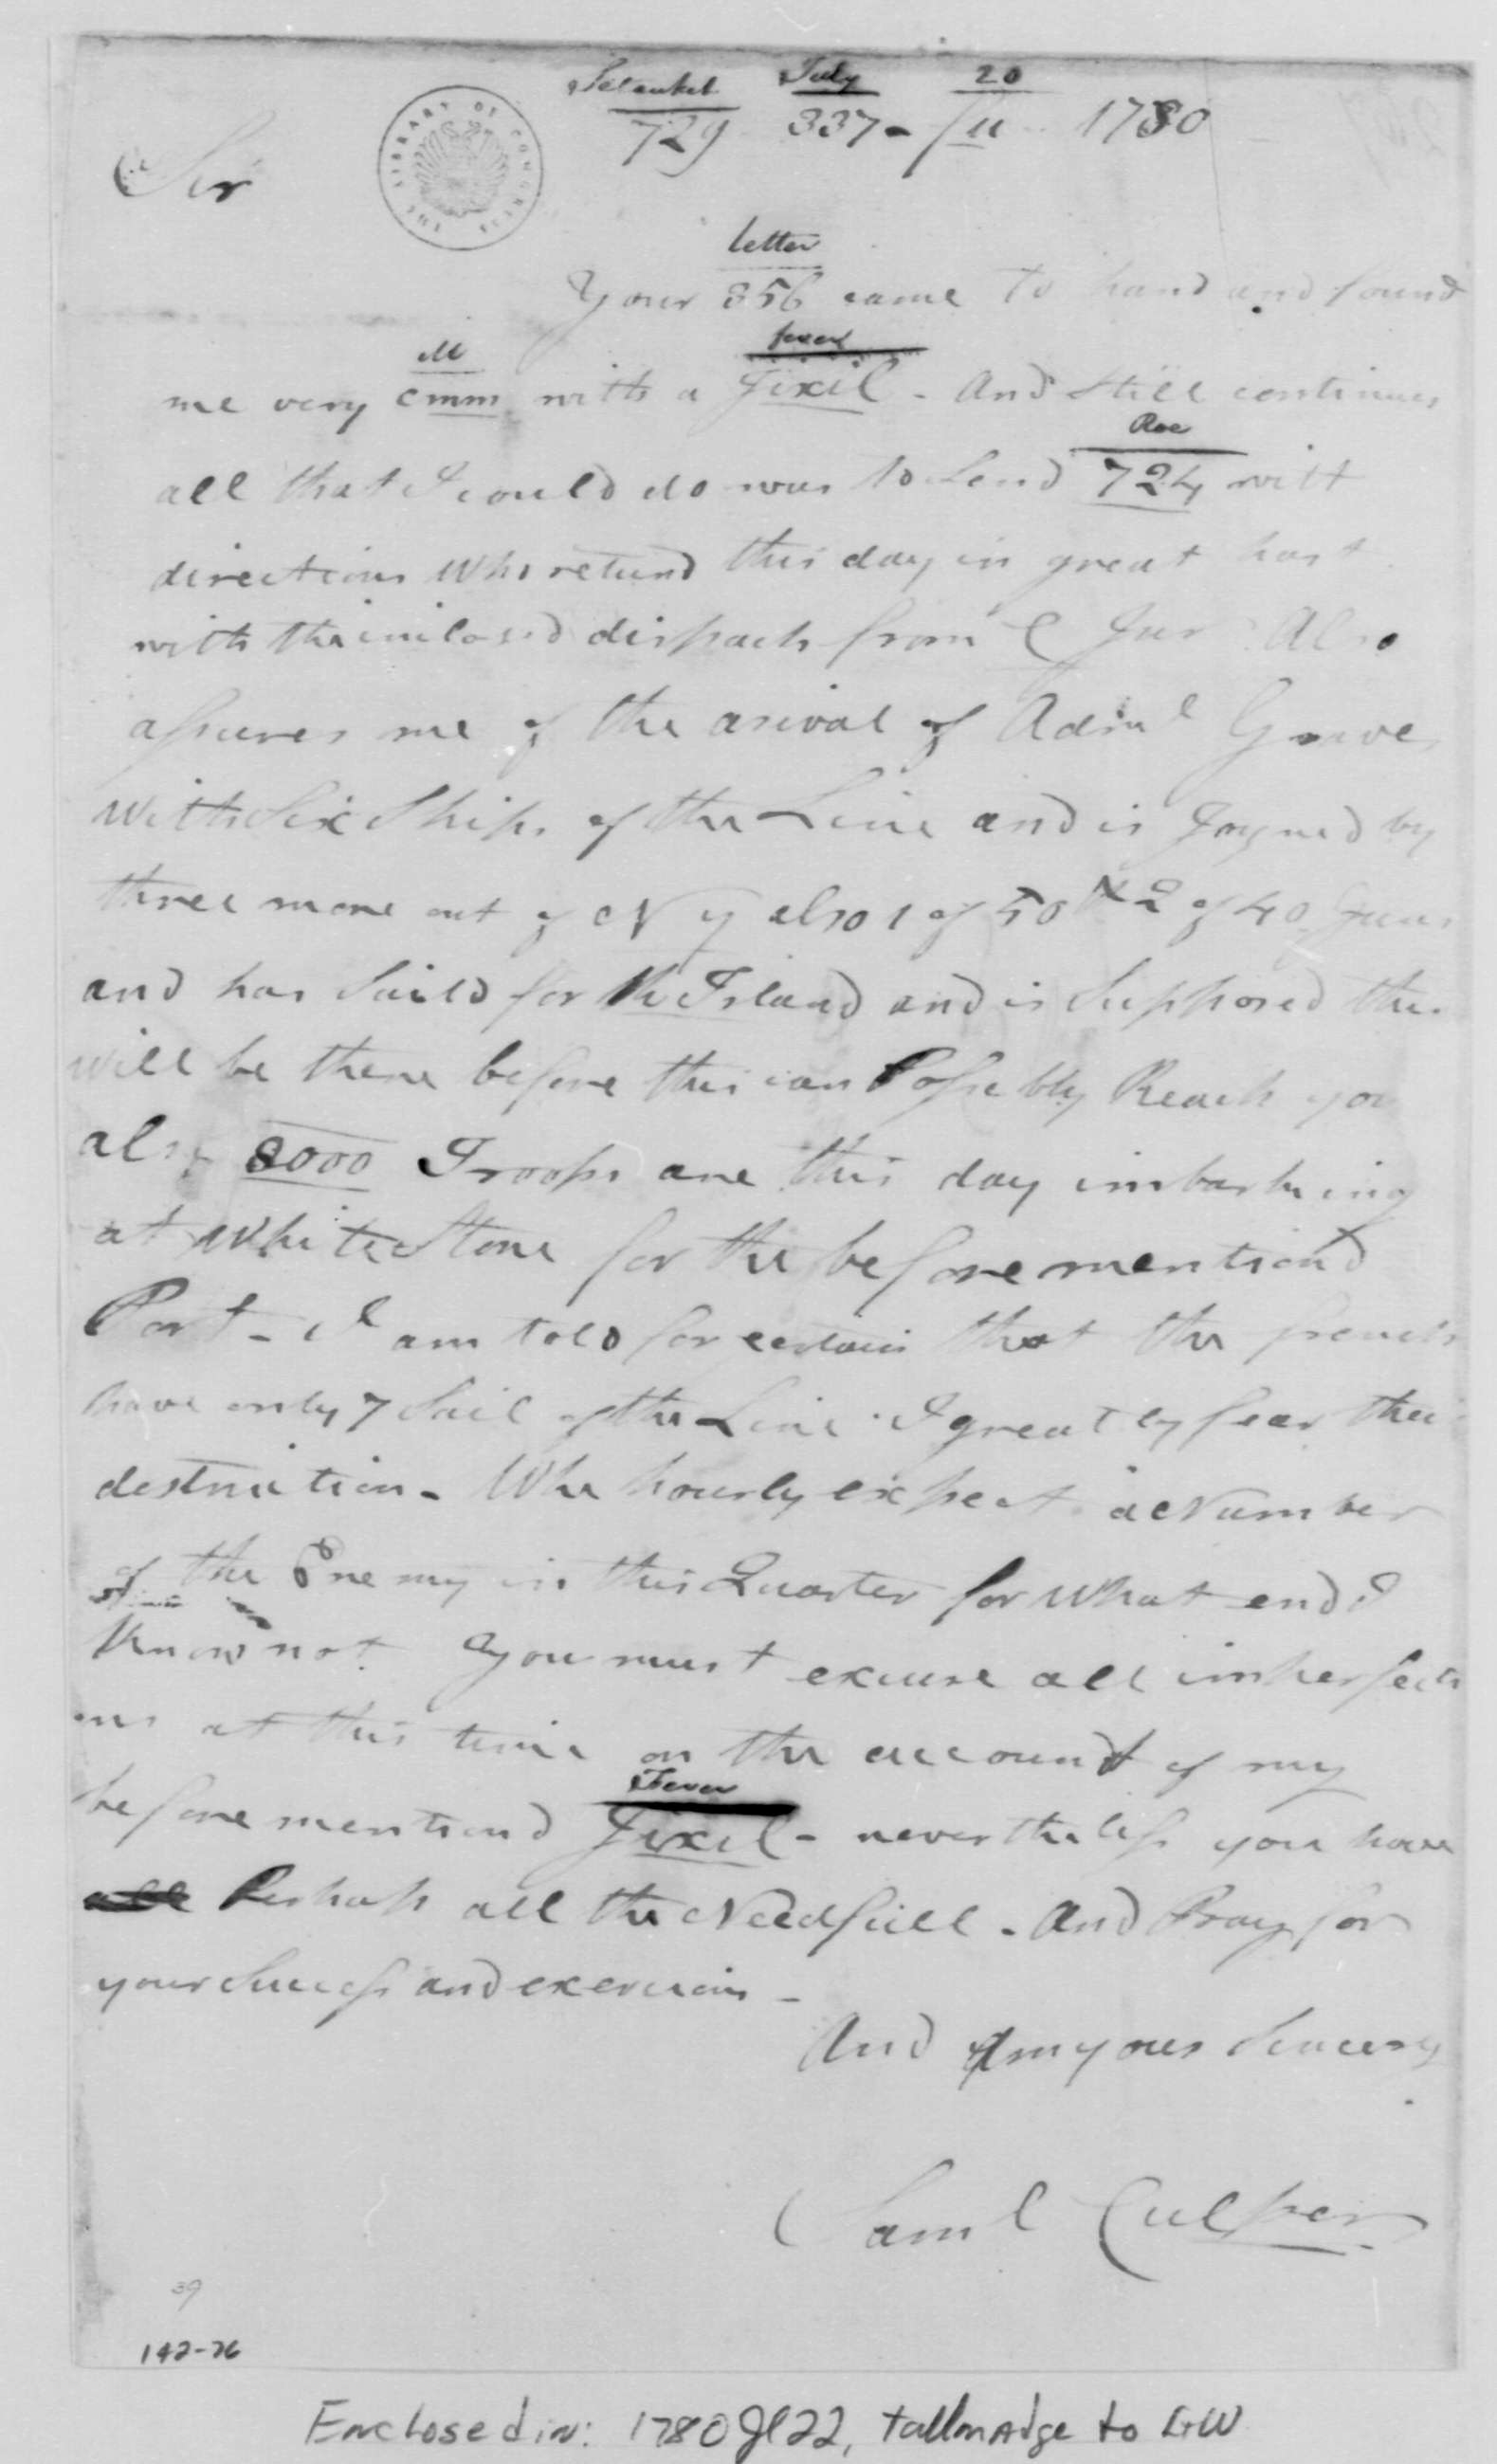 Setauket July 20
729 337- fu 1780
THE LIBRARY OF CONGRESS
Sir
letter
Your 356 came to hand and found
ill fever
me very cmm with a Jixil - And Still continues
Roe
all that I could do was to Send 724 with
directions Who retund this day in great hast
with the inclosd dispach from C Jur Also
assures me of the arival of Adml Graves
With Six Ships of the Line and is Joyned by
three more out of N y also 1 of 50 & 2 of 40 Guns
and has Saild for Rh Island and is Supposed they
will be there before this can Possebly Reach you
also 8000 Troops are this day imbarking
at White Stone for the before mentiond
Port - I am told for certain that the french
have only 7 Sail of the Line I greatly fear their
destruction - Whe hourly expect a Number
of the Enemy in this Quarter for What end I
Know not You must excuse all imperfecti
ons at this time on the account of my
Fever
before mentiond Jixil - never the less you have
all Perhaps all the Needfull - And Pray for
your Success and exercions -
And Am yours Sincerly
Saml Culper
39
142-76
Enclosed in: 1780 Jl 22, Tallmadge to GW